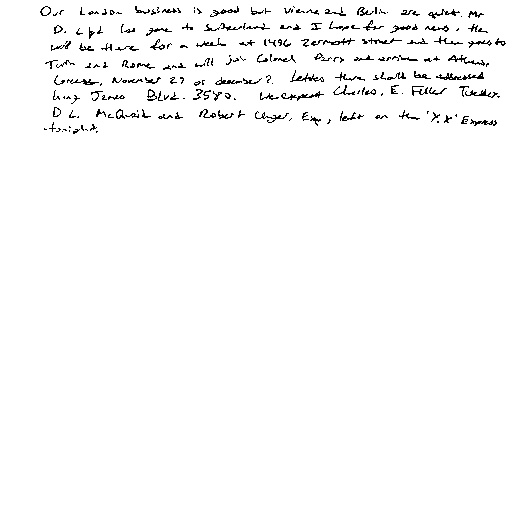 Our London business is good but Vienna and Berlin are quiet. Mr
D. Lloyd has gone to Switzerland and I hope for good news. He
will be there for a week at 1496 Zermott Street and then goes to
Turin and Rome and will join Colonel Parry and arrive at Athens,
Greece, November 27 or December 2. Letters there should be addressed
King James Blvd. 3580. We expect Charles, E. Fuller Tuesday.
D L. McQuaid and Robert Unger, Esq., left on the 'Y.X' Express
tonight.